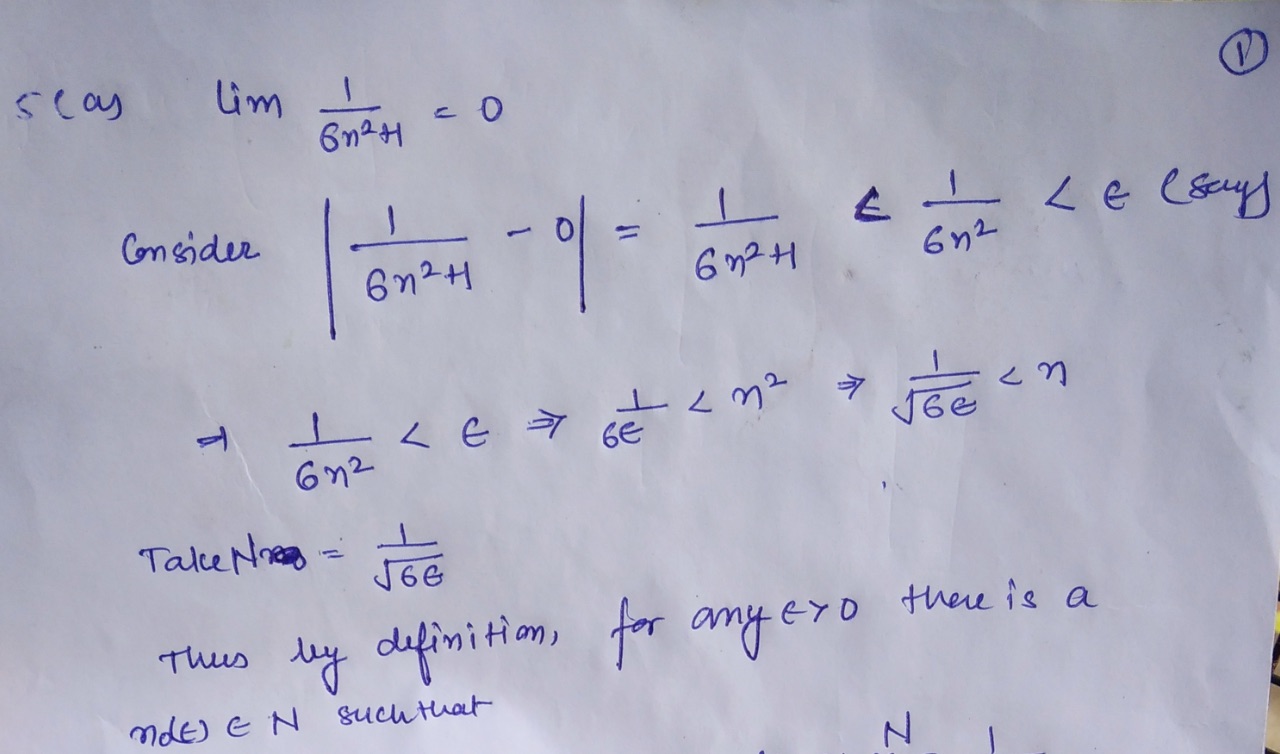 1
5(a) lim 1/(6n²+1) = 0
Consider |1/(6n²+1) - 0| = 1/(6n²+1) < 1/(6n²) < ε (say)
⇒ 1/(6n²) < ε ⇒ 1/(6ε) < n² ⇒ 1/√(6ε) < n
Take N = 1/√(6ε)
Thus by definition, for any ε>0 there is a
n0(ε) ∈ N such that
N 1